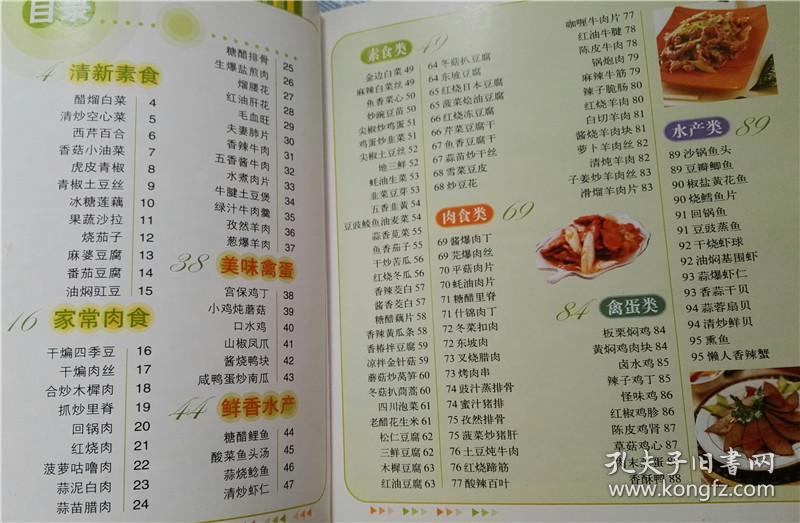 目录
4 清新素食
醋熘白菜 4
清炒空心菜 5
西芹百合 6
香菇小油菜 7
虎皮青椒 8
青椒土豆丝 9
冰糖莲藕 10
果蔬沙拉 11
烧茄子 12
麻婆豆腐 13
番茄豆腐 14
油焖豇豆 15
16 家常肉食
干煸四季豆 16
干煸肉丝 17
合炒木樨肉 18
抓炒里脊 19
回锅肉 20
红烧肉 21
菠萝咕噜肉 22
蒜泥白肉 23
蒜苗腊肉 24
糖醋排骨 25
生爆盐煎肉 26
熘腰花 27
红油肝花 28
毛血旺 29
夫妻肺片 30
香辣牛肉 31
五香酱牛肉 32
水煮肉片 33
牛腱土豆煲 34
绿汁牛肉羹 35
孜然羊肉 36
葱爆羊肉 37
38 美味禽蛋
宫保鸡丁 38
小鸡炖蘑菇 39
口水鸡 40
山椒凤爪 41
酱烧鸭块 42
咸鸭蛋炒南瓜 43
44 鲜香水产
糖醋鲤鱼 44
酸菜鱼头汤 45
蒜烧鲶鱼 46
清炒虾仁 47
素食类 49
金边白菜 49
麻辣白菜丝 49
鱼香菜心 50
炒豌豆苗 50
尖椒炒鸡蛋 51
鸡蛋炒韭菜 51
尖椒土豆丝 52
地三鲜 52
蚝油生菜 53
韭菜豆芽 53
五香韭黄 54
豆豉鲮鱼油麦菜 54
蒜香苋菜 55
鱼香茄子 55
干炒苦瓜 56
红烧冬瓜 56
香辣茭白 57
酱香茭白 57
糖醋藕片 58
香辣黄瓜条 58
香椿拌豆腐 59
凉拌金针菇 59
蘑菇炒莴笋 60
冬菇扒茼蒿 60
四川泡菜 61
老醋花生米 61
松仁豆腐 62
三鲜豆腐 62
木樨豆腐 63
红油豆腐 63
64 冬菇扒豆腐
64 东坡豆腐
65 红烧日本豆腐
65 菠菜烩油豆腐
66 红烧冻豆腐
66 芹菜豆腐干
67 鱼香豆腐干
67 蒜苗炒干丝
68 雪菜豆皮
68 炒豆花
肉食类 69
69 酱爆肉丁
69 芫爆肉丝
70 平菇肉片
70 蚝油肉片
71 糖醋里脊
71 什锦肉丁
72 冬菜扣肉
72 东坡肉
73 叉烧腊肉
73 烤肉串
74 豉汁蒸排骨
74 蜜汁猪排
75 孜然排骨
75 菠菜炒猪肝
76 土豆炖牛肉
76 红烧蹄筋
77 酸辣百叶
咖喱牛肉片 77
红油牛腱 78
陈皮牛肉 78
锅炮肉 79
麻辣牛筋 79
辣子脆肠 80
红烧羊肉 80
白切羊肉 81
酱烧羊肉块 81
萝卜羊肉丝 82
清炖羊肉 82
子姜炒羊肉丝 83
滑熘羊肉片 83
84 禽蛋类
板栗焖鸡 84
黄焖鸡肉块 84
卤水鸡 85
辣子鸡丁 85
怪味鸡 86
红椒鸡胗 86
陈皮鸡肾 87
草菇鸡心 87
肉末蒸蛋 88
香酥鸭 88
水产类 89
89 沙锅鱼头
89 豆瓣鲫鱼
90 椒盐黄花鱼
90 烧鳕鱼片
91 回锅鱼
91 豆豉蒸鱼
92 干烧虾球
92 油焖基围虾
93 蒜爆虾仁
93 香蒜干贝
94 蒜蓉扇贝
94 清炒鲜贝
95 熏鱼
95 懒人香辣蟹
孔夫子旧书网
www.kongfz.com